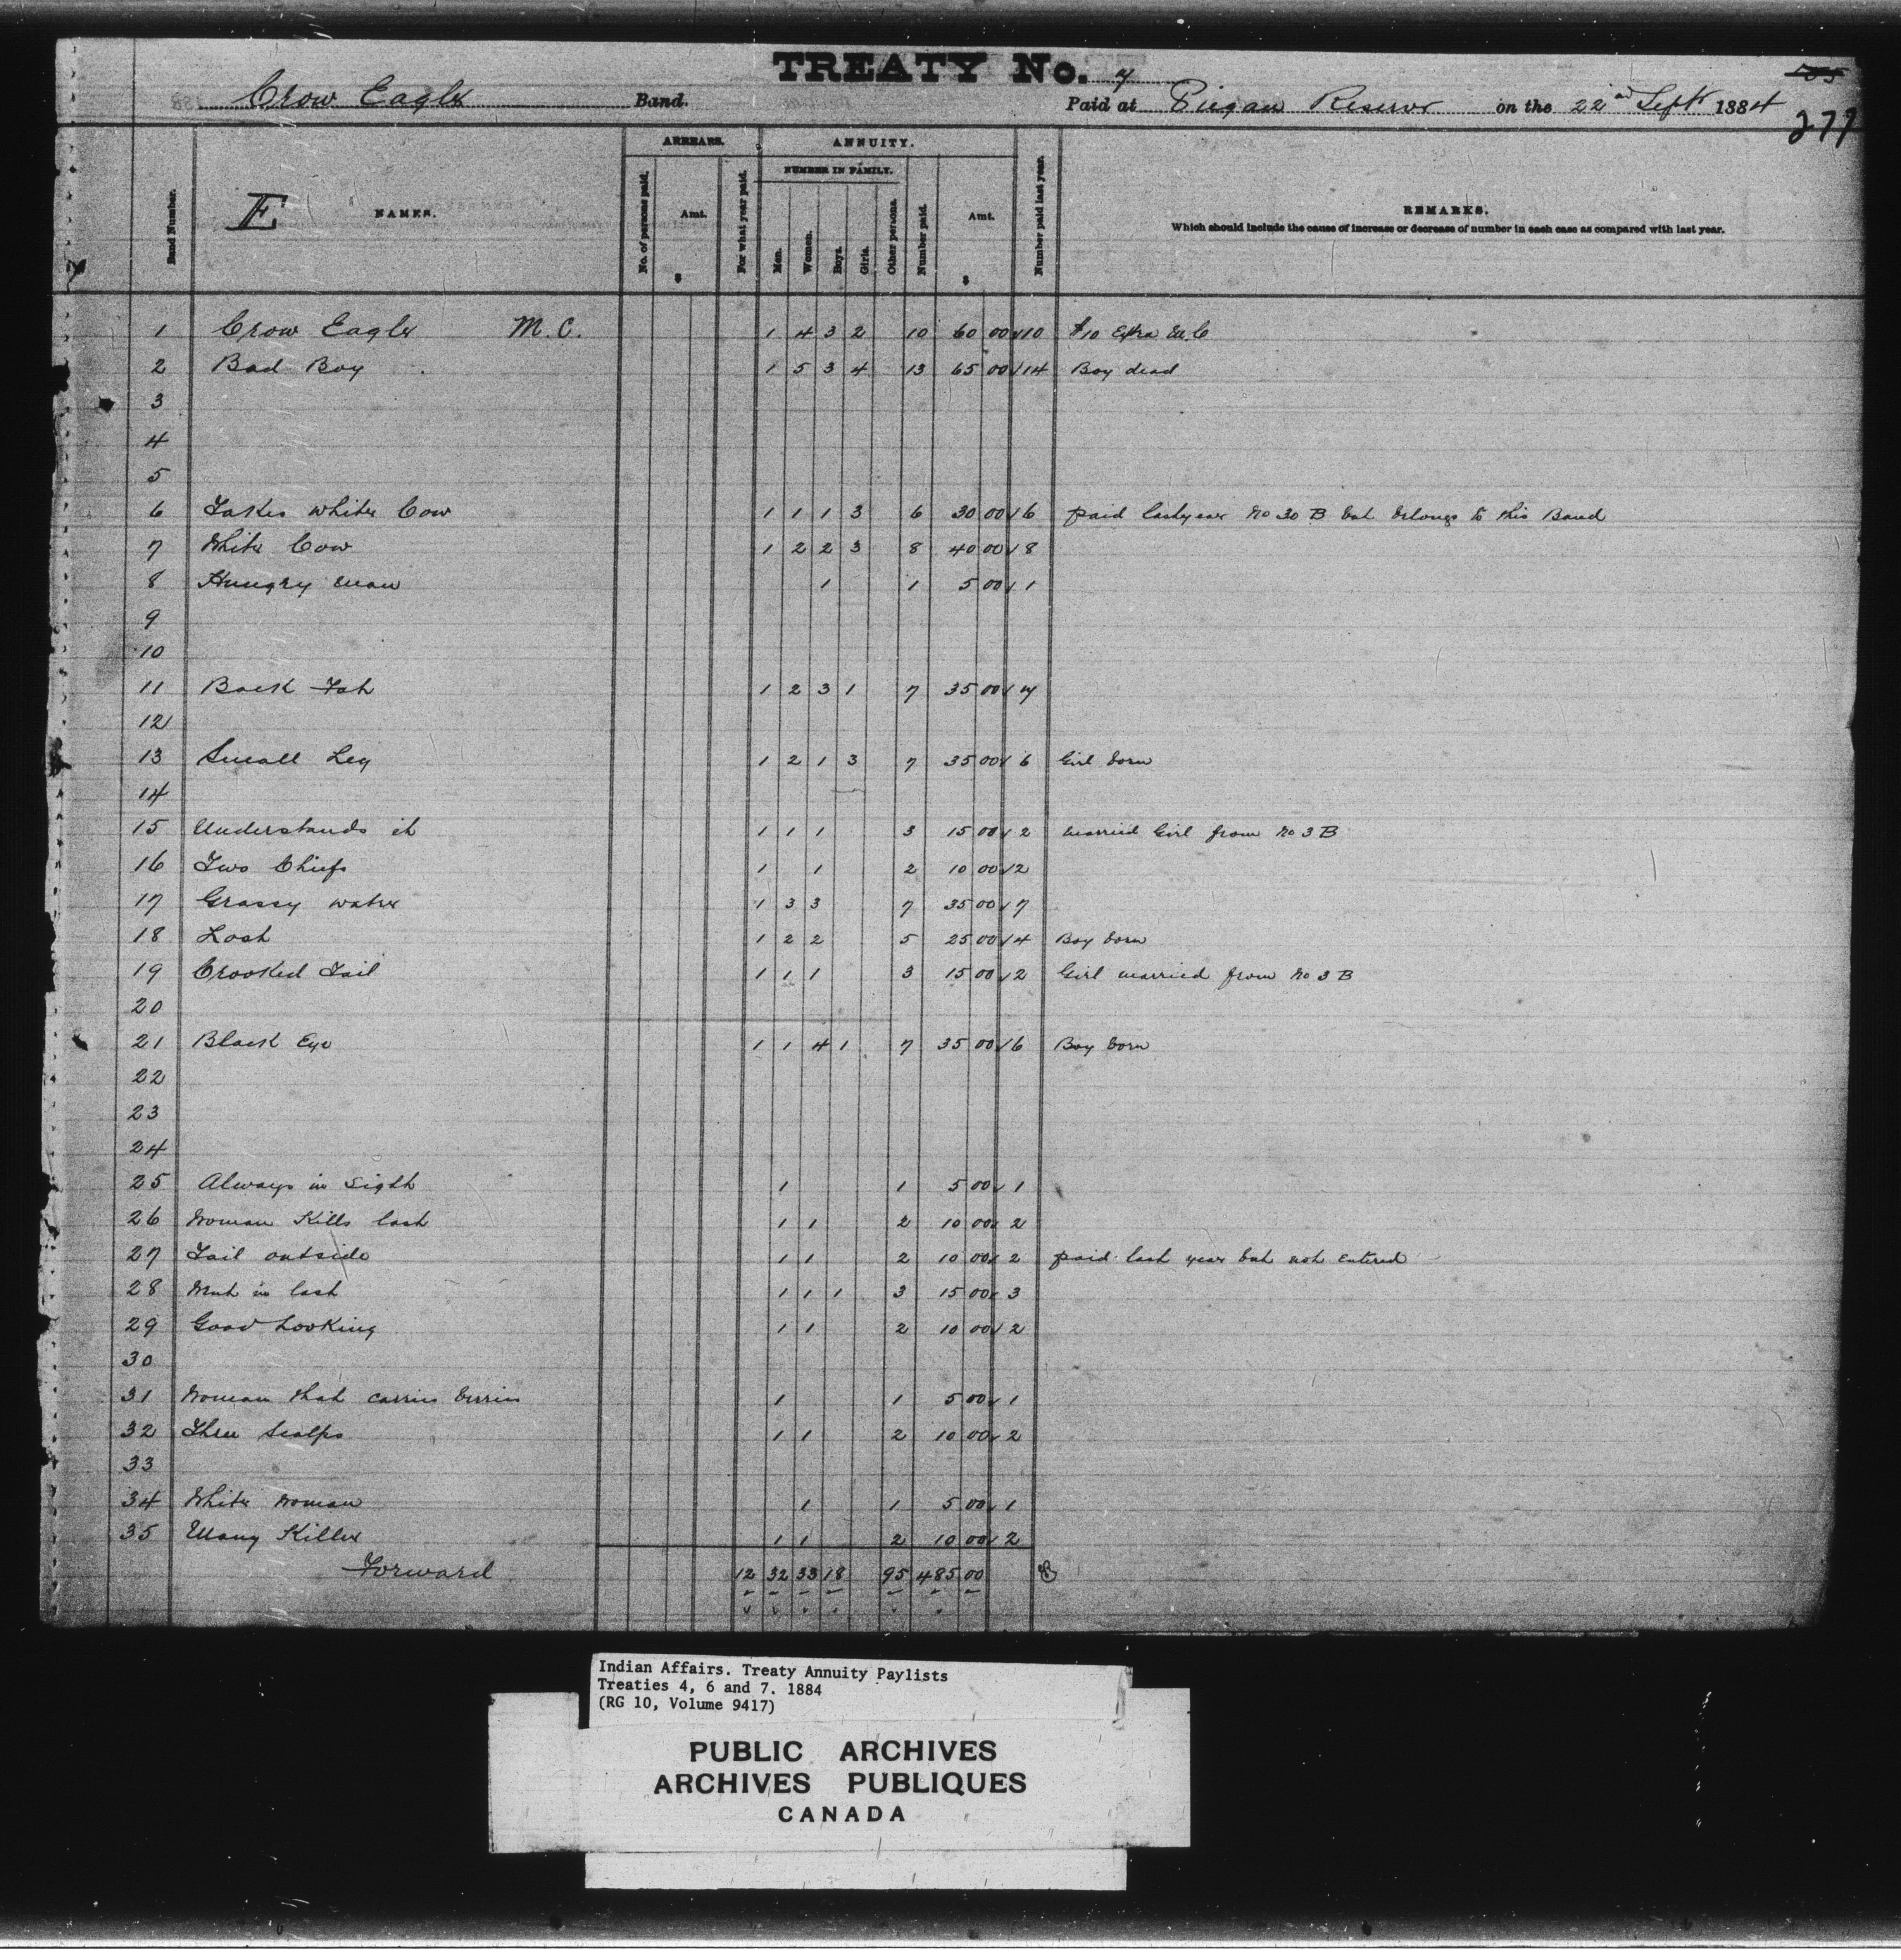 TREATY No. 7
505
Crow Eagle Band. Paid at Piegan Reserve on the 22nd Sept 1884
277
Band Number.
E NAMES.
ARREARS.
No. of persons paid.
Amt.
$
For what year paid.
ANNUITY.
NUMBER IN FAMILY.
Men.
Women.
Boys.
Girls.
Other persons.
Number paid.
Amt.
$
Number paid last year.
REMARKS.
Which should include the cause of increase or decrease of number in each case as compared with last year.
1 Crow Eagle M.C. 1 4 3 2 10 60 00 √ 10 $10 Extra M.C
2 Bad Boy 1 5 3 4 13 65 00 √ 14 Boy dead
3
4
5
6 Takes White Cow 1 1 1 3 6 30 00 √ 6 paid last year No 30 B but belongs to this Band
7 White Cow 1 2 2 3 8 40 00 √ 8
8 Hungry man 1 1 5 00 √ 1
9
10
11 Back Fat 1 2 3 1 7 35 00 √ 7
12
13 Small Leg 1 2 1 3 7 35 00 √ 6 Girl born
14
15 Understands it 1 1 1 3 15 00 √ 2 married Girl from No 3 B
16 Two Chiefs 1 1 2 10 00 √ 2
17 Grassy water 1 3 3 7 35 00 √ 7
18 Last 1 2 2 5 25 00 √ 4 Boy born
19 Crooked Tail 1 1 1 3 15 00 √ 2 Girl married from No 3 B
20
21 Black Eye 1 1 4 1 7 35 00 √ 6 Boy born
22
23
24
25 Always in Sight 1 1 5 00 √ 1
26 Woman Kills last 1 1 2 10 00 √ 2
27 Tail outside 1 1 2 10 00 √ 2 paid last year but not entered
28 Went in last 1 1 1 3 15 00 √ 3
29 Good Looking 1 1 2 10 00 √ 2
30
31 Woman that carries berries 1 1 5 00 √ 1
32 Three Scalps 1 1 2 10 00 √ 2
33
34 White Woman 1 1 5 00 √ 1
35 Many Killer 1 1 2 10 00 √ 2
Forward 12 32 33 18 95 485 00
Indian Affairs. Treaty Annuity Paylists
Treaties 4, 6 and 7. 1884
(RG 10, Volume 9417)
PUBLIC ARCHIVES
ARCHIVES PUBLIQUES
CANADA